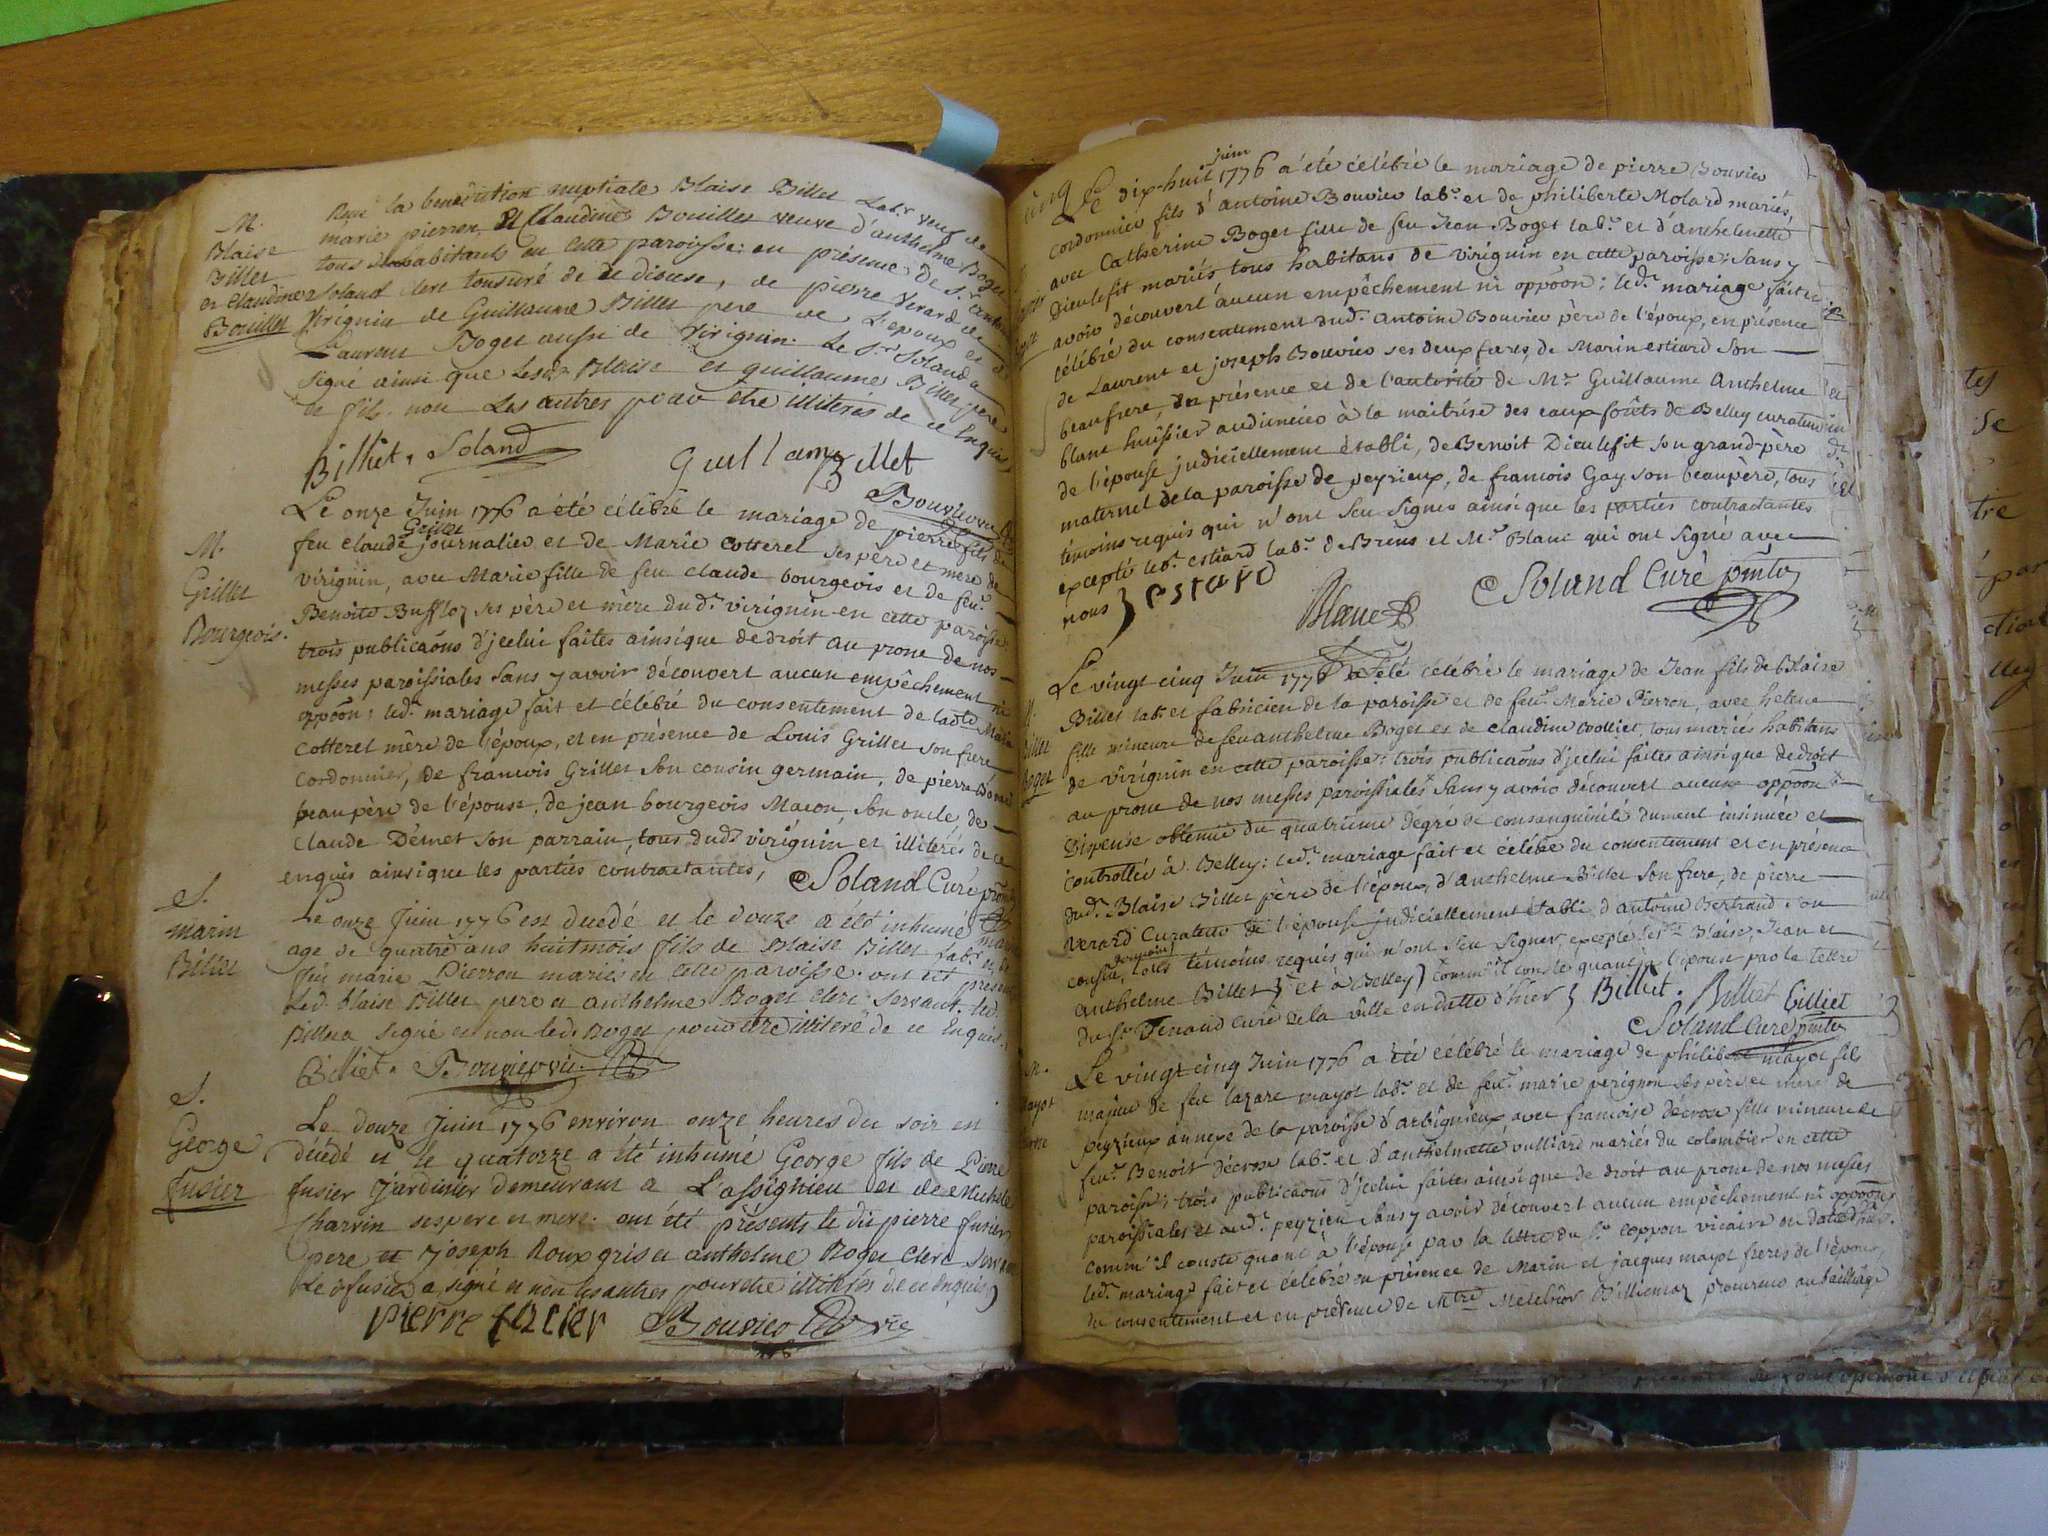 M.
Blaise
Billet
et Claudine
Bouillet
Reçu la benediction nuptiale Blaise Billet Labr veuf de
marie pierron, et Claudine Bouillet veuve d'anthelme Boget
tous habitants en cette paroisse: en présence de Sr
Soland clerc tonsuré de ce diocese, de pierre Verard de
Virignin de Guillaume Billet pere de L'epoux et de
Laurent Boget aussi de Virignin. Le Sr Soland a
signé ainsi que Lesdts Blaise et guillaume Billet pere
et fils. non Les autres pour être illiterés de ce Enquis
Billiet. Soland Guillame Billet
Bouvier vic
M.
Grillet
Bourgeois.
Le onze Juin 1776 a été célébré le mariage de pierre fils de
feu claude Grillet journalier et de Marie Cotteret ses père et mère de
virignin, avec Marie fille de feu claude bourgeois et de feue
Benoite Buffloz ses père et mère dudt virignin en cette paroisse:
trois publicaõns d'jcelui faites ainsi que de droit au prone de nos
messes paroissiales sans y avoir découvert aucun empêchement ni
oppõon; ledt mariage fait et célébré du consentement de ladte Marie
Cotteret mère de l'époux, et en présence de Louis Grillet son frere
Cordonnier, de francois Grillet son cousin germain, de pierre
beaupère de l'épouse, de jean bourgeois Macon, son oncle de
claude Dêmet son parrain, tous dudt virignin et illitérés de ce
enquis ainsi que les parties contractantes, Soland Curé
S.
marin
Billet
Le onze Juin 1776 est decedé et le douze a été inhumé marin
age de quatre ans huit mois fils de Blaise Billet Labr et de
feu marie Pierron mariés de cette paroisse. ont été présens
Led. blaise Billet pere et anthelme Boget clerc servant. led.
Billet a signé et non led. Boget pour être illiteré de ce Enquis.
Billiet. Bouvier vic.
S.
George
fusier
Le douze Juin 1776 environ onze heures du soir est
décédé et le quatorze a été inhumé George fils de Pierre
fusier Jardinier demeurant a L'assignieu et de Michele
Charrin ses pere et mere. ont été présents le dit pierre fusier
pere et joseph Roux gris et anthelme Boget clerc servant
Le dt fusier a signé et non les autres pour etre illiterés de ce enquis
pierre fucier Bouvier vic
Le dix-huit juin 1776 a été célébré le mariage de pierre Bouvier
cordonnier fils d'antoine Bouvier labr. et de philiberte Molard mariés,
avec Catherine Boget fille de feu Jean Boget labr. et d'anthelmette
Dieulefit mariés tous habitans de virignin en cette paroisse; sans y
avoir découvert aucun empêchement ni oppõon; ledt mariage fait et
célébré du consentement dudt antoine Bouvier père de l'époux, en présence
de Laurent et joseph Bouvier ses deux freres, de Marin estiard son
beaufrere, en présence et de l'autorité de Mr Guillaume Anthelme
blanc huissier audiencier à la maitrise des eaux forêts de Belley curateur
de l'épouse judiciellement établi, de Benoit Dieulefit son grand-père
maternel de la paroisse de peyrieux, de francois Gay son beaupère, tous
témoins requis qui n'ont seu signer ainsi que les parties contractantes
excepté ledt. estiard labr. de Brens et Mr. Blanc qui ont signé avec
nous } estard
Blanc Soland Curé
Billet
Boget
Le vingt cinq Juin 1776 a été célébré le mariage de Jean fils de Blaise
Billet labr. et fabricien de la paroisse et de feue Marie Pierron, avec helene
fille mineure de feu anthelme Boget et de claudine volliet, tous mariés habitans
de virignin en cette paroisse; trois publicaõns d'jcelui faites ainsi que de droit
au prone de nos messes paroissiales sans y avoir découvert aucune oppõon
Dispense obtenue du quatrieme dégré de consanguinité dument insinuée et
controllée à Belley: ledt. mariage fait et célébré du consentement et en présence
dudt. Blaise Billet père de l'époux, d'Anthelme Billet son frere, de pierre
verard Curateur de l'épouse judiciellement établi d'antoine Bertrand son
cousin germain, tous témoins requis qui n'ont seu signer, excepté lesdts Blaise, Jean et
anthelme Billet } et à Belley } comm'il conste quant à l'époux par la lettre
du Sr. Curé de la ville en datte d'hier } Billiet. Billiet billiet
Soland Curé
M.
mayot
Le vingt-cinq Juin 1776 a été célébré le mariage de philibert mayot fils
majeur de feu lazare mayot labr. et de feue marie perignon ses père et mère de
peyzieux annexe de la paroisse d'arbignieux avec francoise décrose fille mineure de
feu Benoit décrose labr. et d'anthelmette vulliard mariés du colombier en cette
paroisse; trois publicaõns d'jcelui faites ainsi que de droit au prone de nos messes
paroissiales et audt. peyzieu sans y avoir découvert aucun empêchement ni oppõon
comm'il conste quant à l'épouse par la lettre du Sr. coppon vicaire en date d'hier.
ledt. mariage fait et célébré en présence de Marin et jacques mayot freres de l'époux,
du consentement et en présence de Mtre Melchior Billiemaz procureur au bailliage